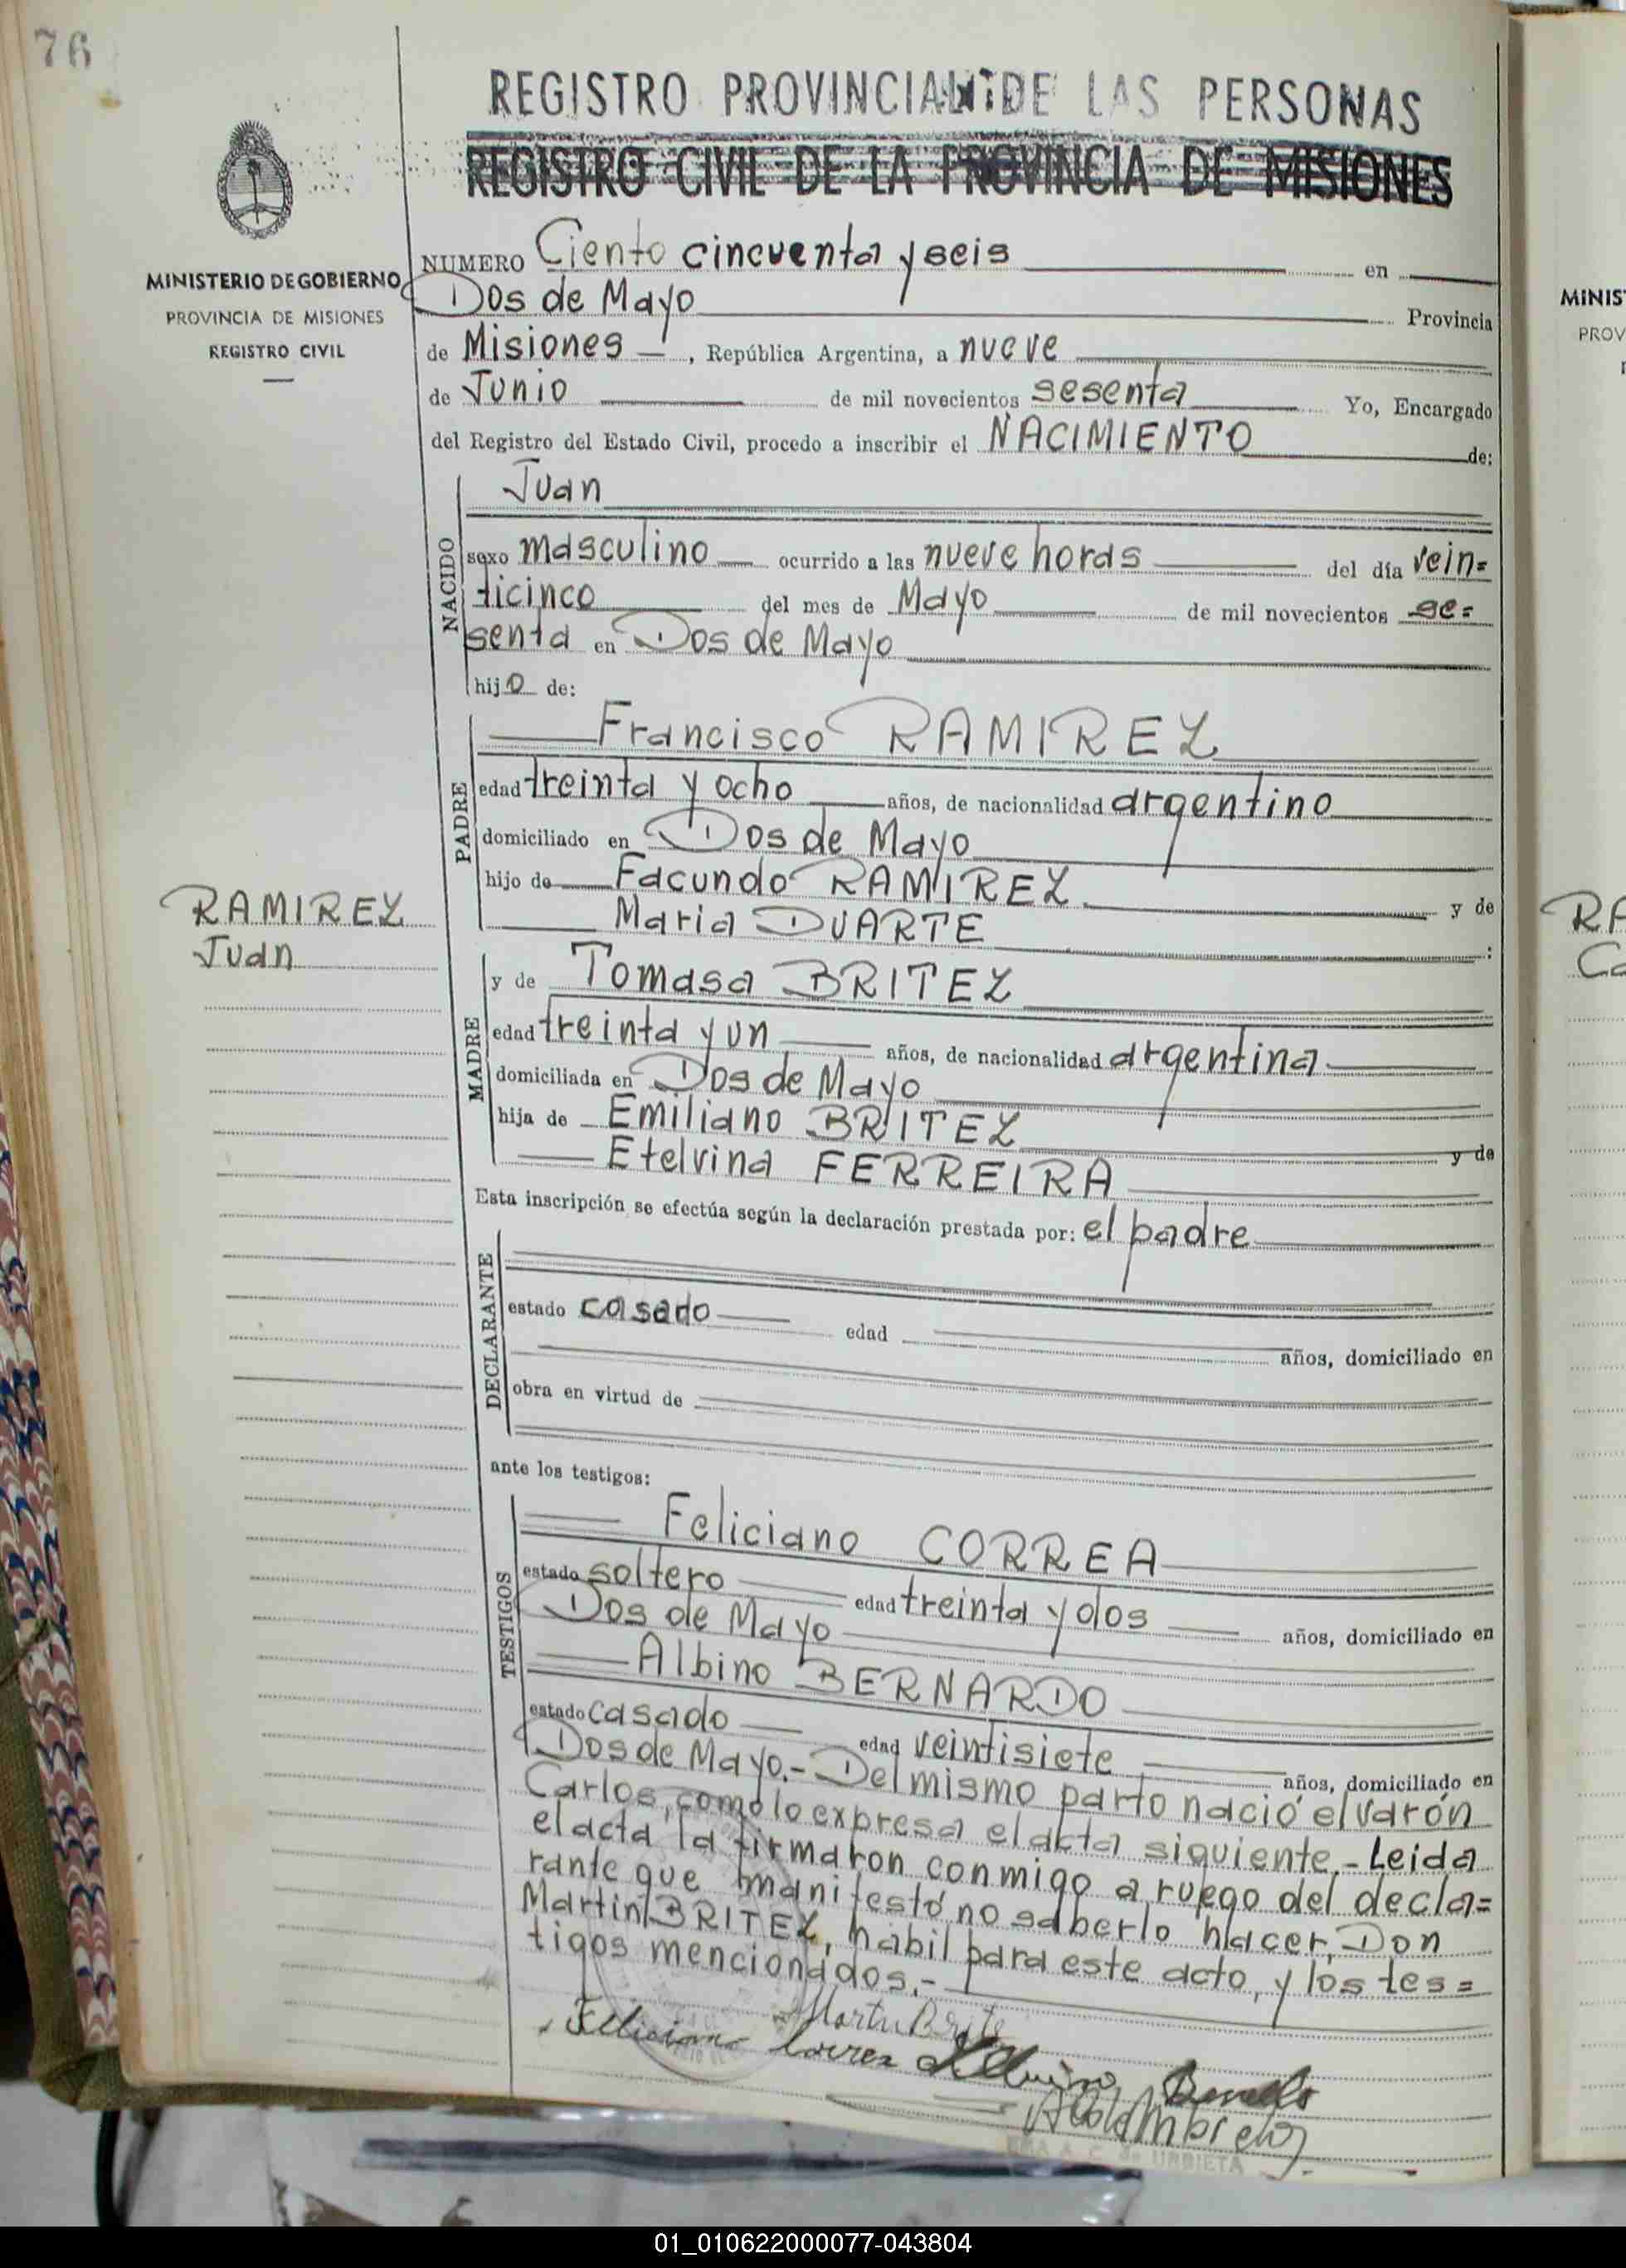 76
REGISTRO PROVINCIAL DE LAS PERSONAS
REGISTRO CIVIL DE LA PROVINCIA DE MISIONES
MINISTERIO DE GOBIERNO
PROVINCIA DE MISIONES
REGISTRO CIVIL
NUMERO Ciento cincuenta y seis en
Dos de Mayo Provincia
de Misiones, República Argentina, a nueve
de Junio de mil novecientos sesenta Yo, Encargado
del Registro del Estado Civil, procedo a inscribir el NACIMIENTO de:
NACIDO
Juan
sexo masculino ocurrido a las nueve horas del día vein=
ticinco del mes de Mayo de mil novecientos se=
senta en Dos de Mayo
hijo de:
PADRE
Francisco RAMIREZ
edad treinta y ocho años, de nacionalidad argentino
domiciliado en Dos de Mayo
hijo de Facundo RAMIREZ y de
Maria DUARTE :
RAMIREZ
Juan
MADRE
y de Tomasa BRITEZ
edad treinta y un años, de nacionalidad argentina
domiciliada en Dos de Mayo
hija de Emiliano BRITEZ y de
Etelvina FERREIRA
Esta inscripción se efectúa según la declaración prestada por: el padre
DECLARANTE
estado casado edad años, domiciliado en
obra en virtud de
ante los testigos:
TESTIGOS
Feliciano CORREA
estado soltero edad treinta y dos años, domiciliado en
Dos de Mayo
Albino BERNARDO
estado casado edad veintisiete años, domiciliado en
Dos de Mayo.- Del mismo parto nació el varón
Carlos, como lo expresa el acta siguiente.- Leida
el acta la firmaron conmigo a ruego del decla=
rante que manifestó no saberlo hacer, Don
Martin BRITEZ, hábil para este acto, y los tes=
tigos mencionados.-
Martin Brite
Feliciano Correa
URBIETA
MINIS
PROV
RA
Ca
01_010622000077-043804